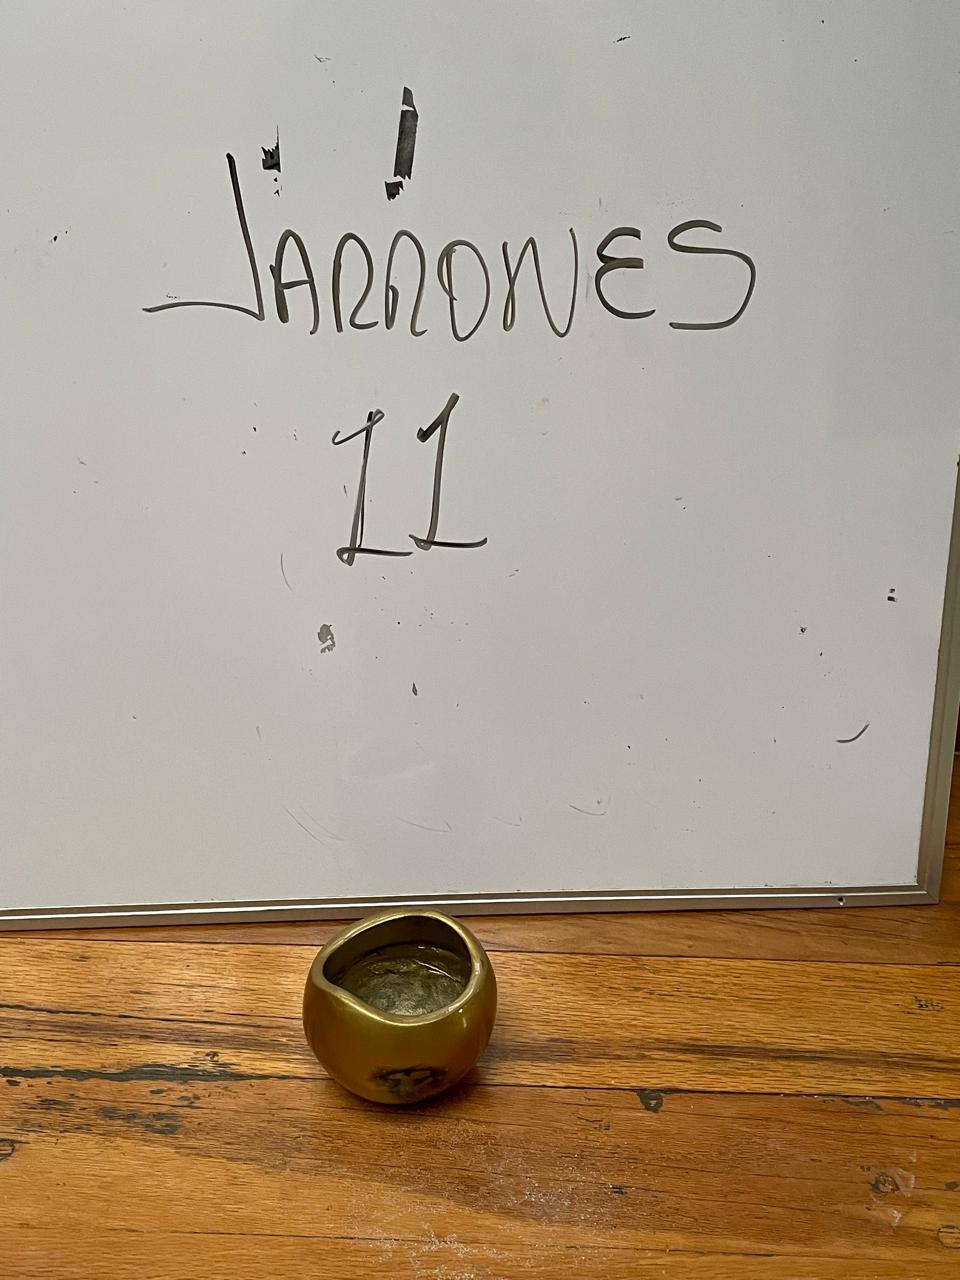 JARRONES
11